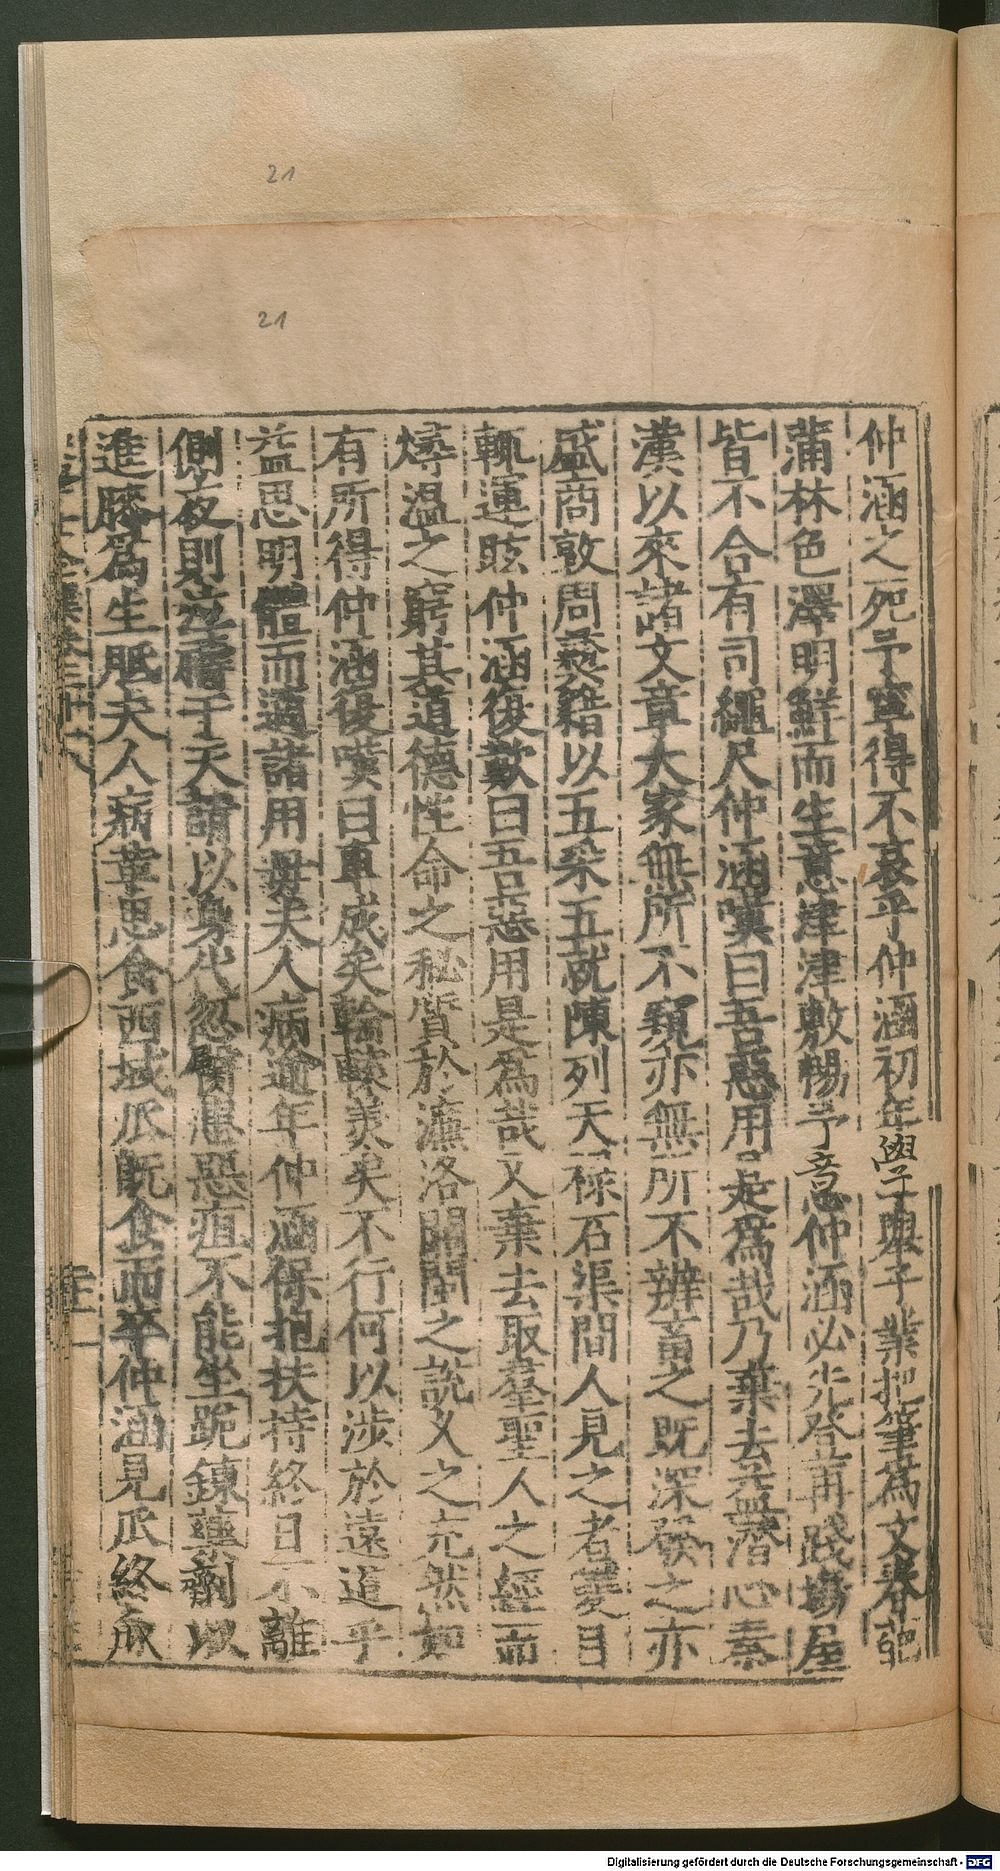 21
21
仲涵之死予寧得不哀乎仲涵初年學舉子業把筆爲文春葩
蒲林色澤明鮮而生意津津敷暢予意仲涵必先登再踐場屋
皆不合有司繩尺仲涵嘆曰吾惡用是爲哉乃棄去益潛心秦
漢以來諸文章大家無所不窺亦無所不辨畜之既深發之亦
盛商敦周彝藉以五采五就陳列天祿石渠間人見之者凌目
輒運眩仲涵復歎曰吾惡用是爲哉又棄去取羣聖人之經而
燖溫之窮其道德性命之秘質於濂洛關閩之說乂之充然如
有所得仲涵復嘆曰車成矣輪轅美矣不行何以涉於遠道乎
益思明體而適諸用母夫人病逾年仲涵保抱扶持終日不離
側夜則泣禱于天請以身代忽臂患惡疽不能坐跪鍊藥劑以
進朕爲生胝夫人病革思食西域瓜旣食而卒仲涵見瓜終身
Digitalisierung gefördert durch die Deutsche Forschungsgemeinschaft - DFG